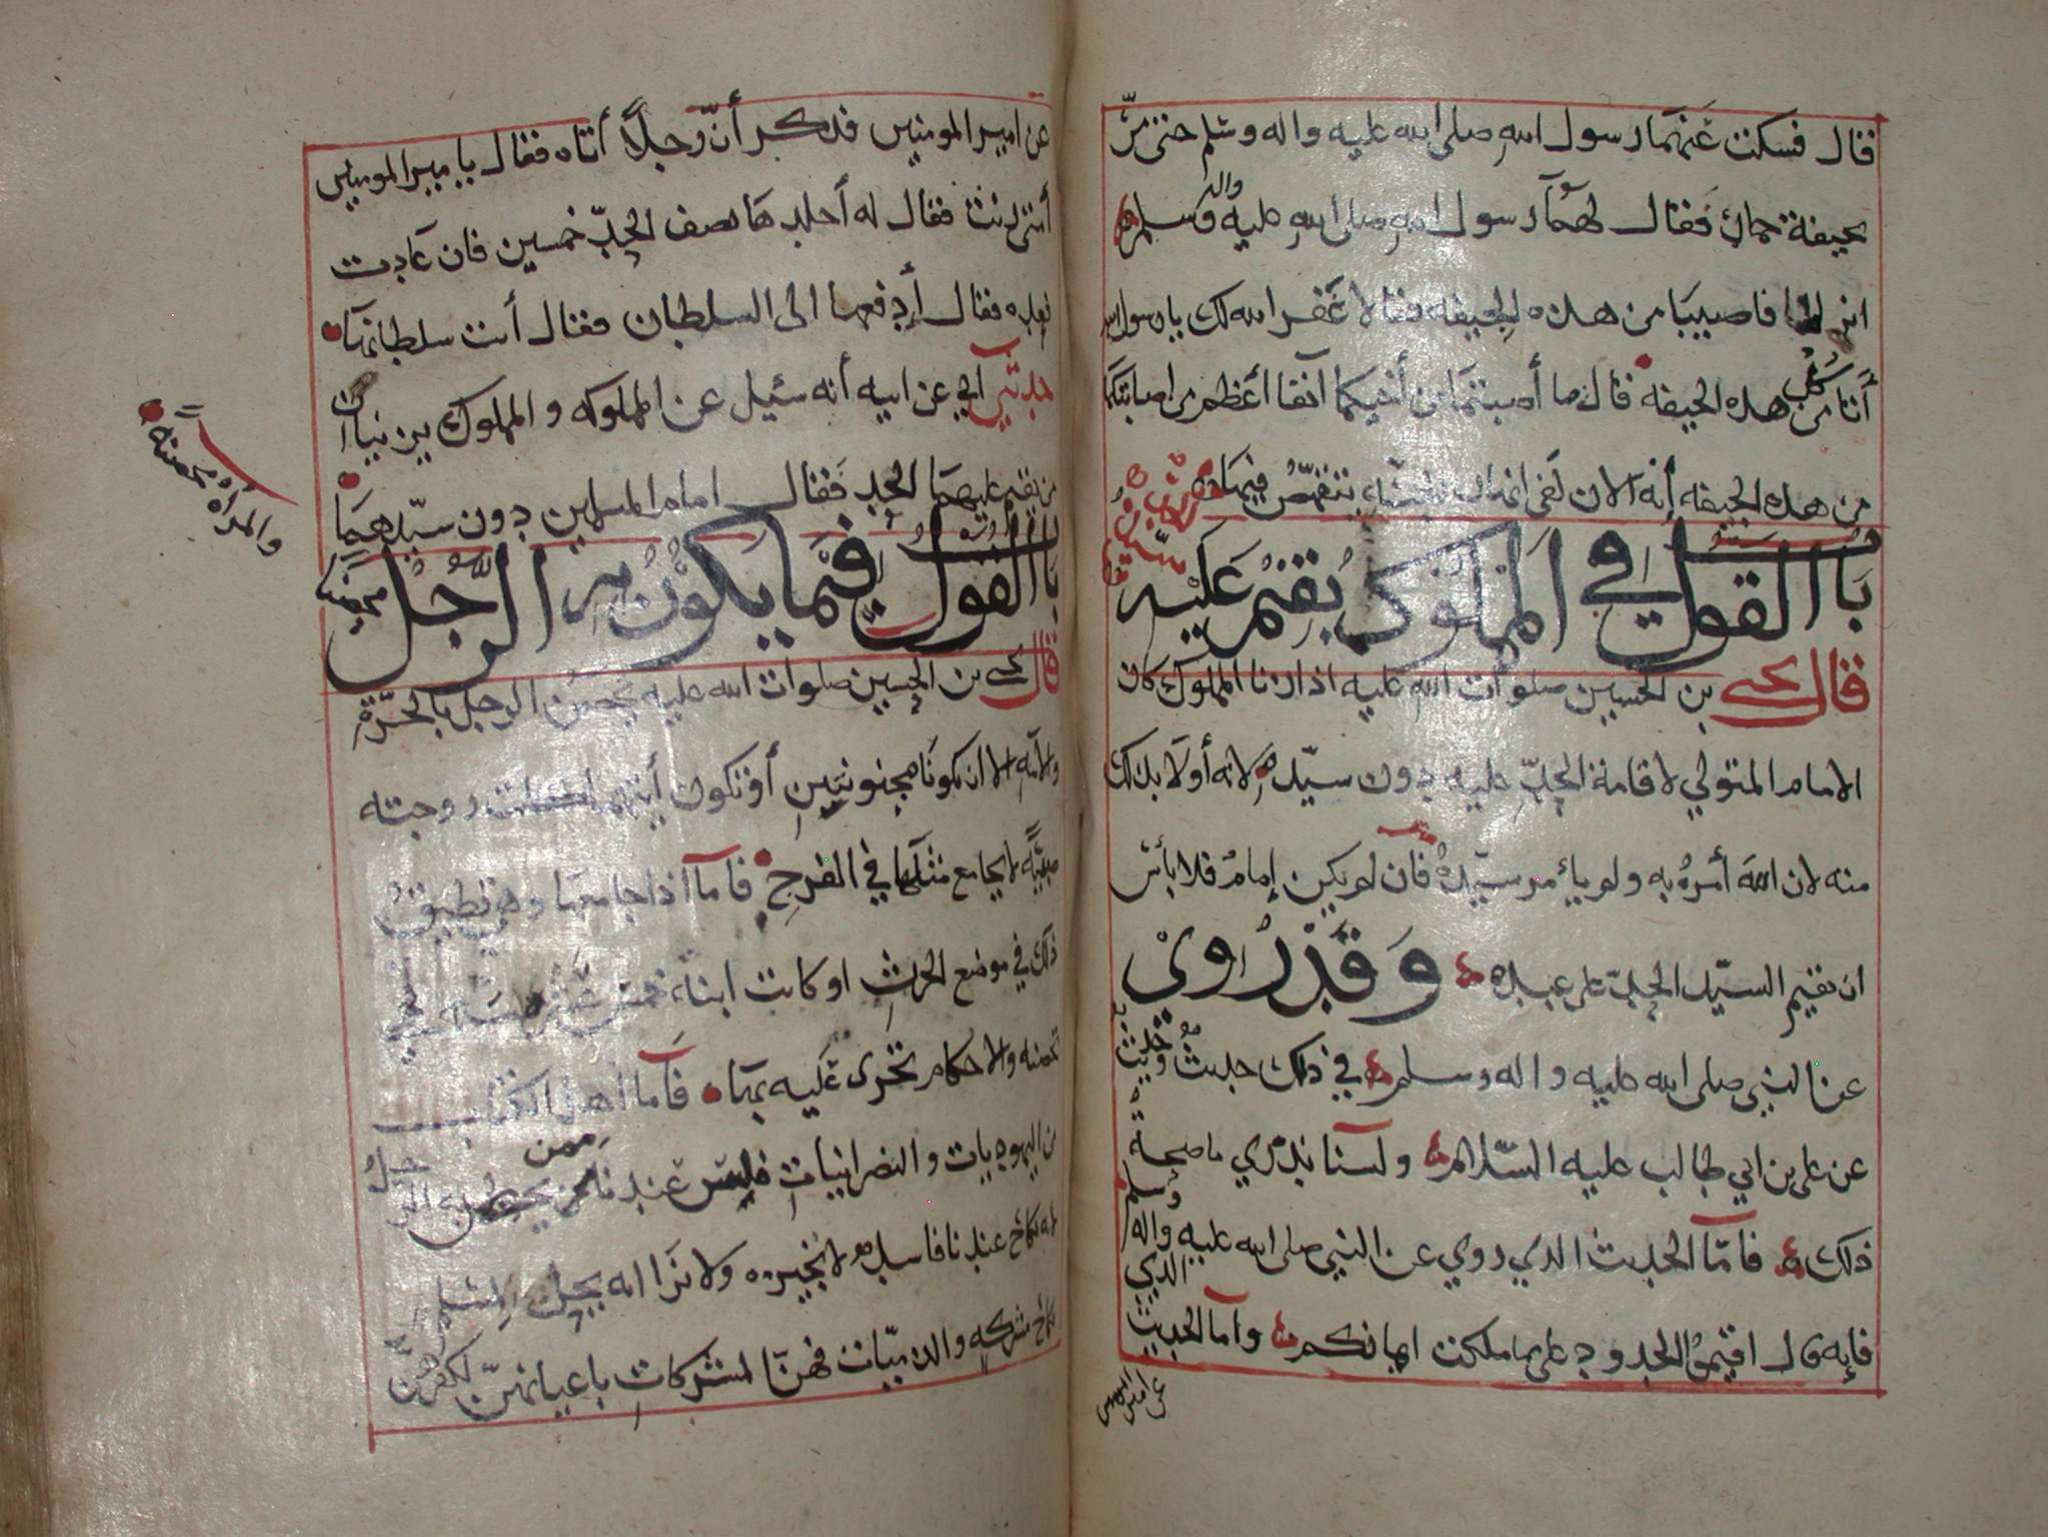 قال فسكت عنهما رسول الله صلى الله عليه واله وسلم حتى مرّ
بجيفة حمار فقال لهما رسول الله صلى الله عليه واله وسلم
انزلا فاصيبا من هذه الجيفه فقالا غفر الله لك يا رسول الله
أنأكل من هذه الجيفه قال ما أصبتما من أخيكما آنفا أعظم من اصابتكما
من هذه الجيفه إنه الان لفي انهار الجنه يتقمّص فيها
باب القول في المملوك يقيم عليه
سيّده
فقال يحيى بن الحسين صلوات الله عليه اذا زنا المملوك كان
الامام المتولي لاقامة الحدّ عليه دون سيّده لانه أولا بذلك
منه لان الله أمره به ولم يأمر سيّده فان لم يكن إمام فلا بأس
ان يقيم السيّد الحدّ على عبده وقد روي
عن النبي صلى الله عليه واله وسلم في ذلك حديث وحديث
عن علي بن ابي طالب عليه السّلام ولسنا ندري ما صحة
ذلك فامّا الحديث الذي روي عن النبي صلى الله عليه واله وسلم الذي
فإنه قال اقيموا الحدود على ما ملكت ايمانكم وأما الحديث
عن امير المومنين
عن امير المومنين فذكر أنّ رجلاً أتاه فقال يا مير المومنين
أمتي زنت فقال له أجلدها نصف الحدّ خمسين فان عادت
فعد فقال أدفعها الى السلطان فقال أنت سلطانها
حدثني ابي عن ابيه أنه سئيل عن المملوكه والمملوك يزنيان
من يقيم عليهما الحد فقال امام المسلمين دون سيّدهما
باب القول فيما يكون به الرجل محصنا
والمرأه محصنة
قال يحيى بن الحسين صلوات الله عليه يحصن الرجل بالحرّة
والأمه الا ان يكونا مجنونتين أو تكون زوجته
صبيّه لا يجامع مثلها في الفرج فامآ اذا جامعها وهي تطيق
ذلك في موضع الحرث او كانت ابنة
تحصنه والاحكام تجرى عليه بها فامآ أهل الكتاب
من اليهوديات والنصرانيات فليس عندنا ممن يحصن به الرجل
لانه نكاح عندنا فاسد لا نجيزه ولا نرا انه يجوز لمسلم
نكاح مشركه والذميّات فهنّ المشركات باعيانهنّ لكفرهنّ